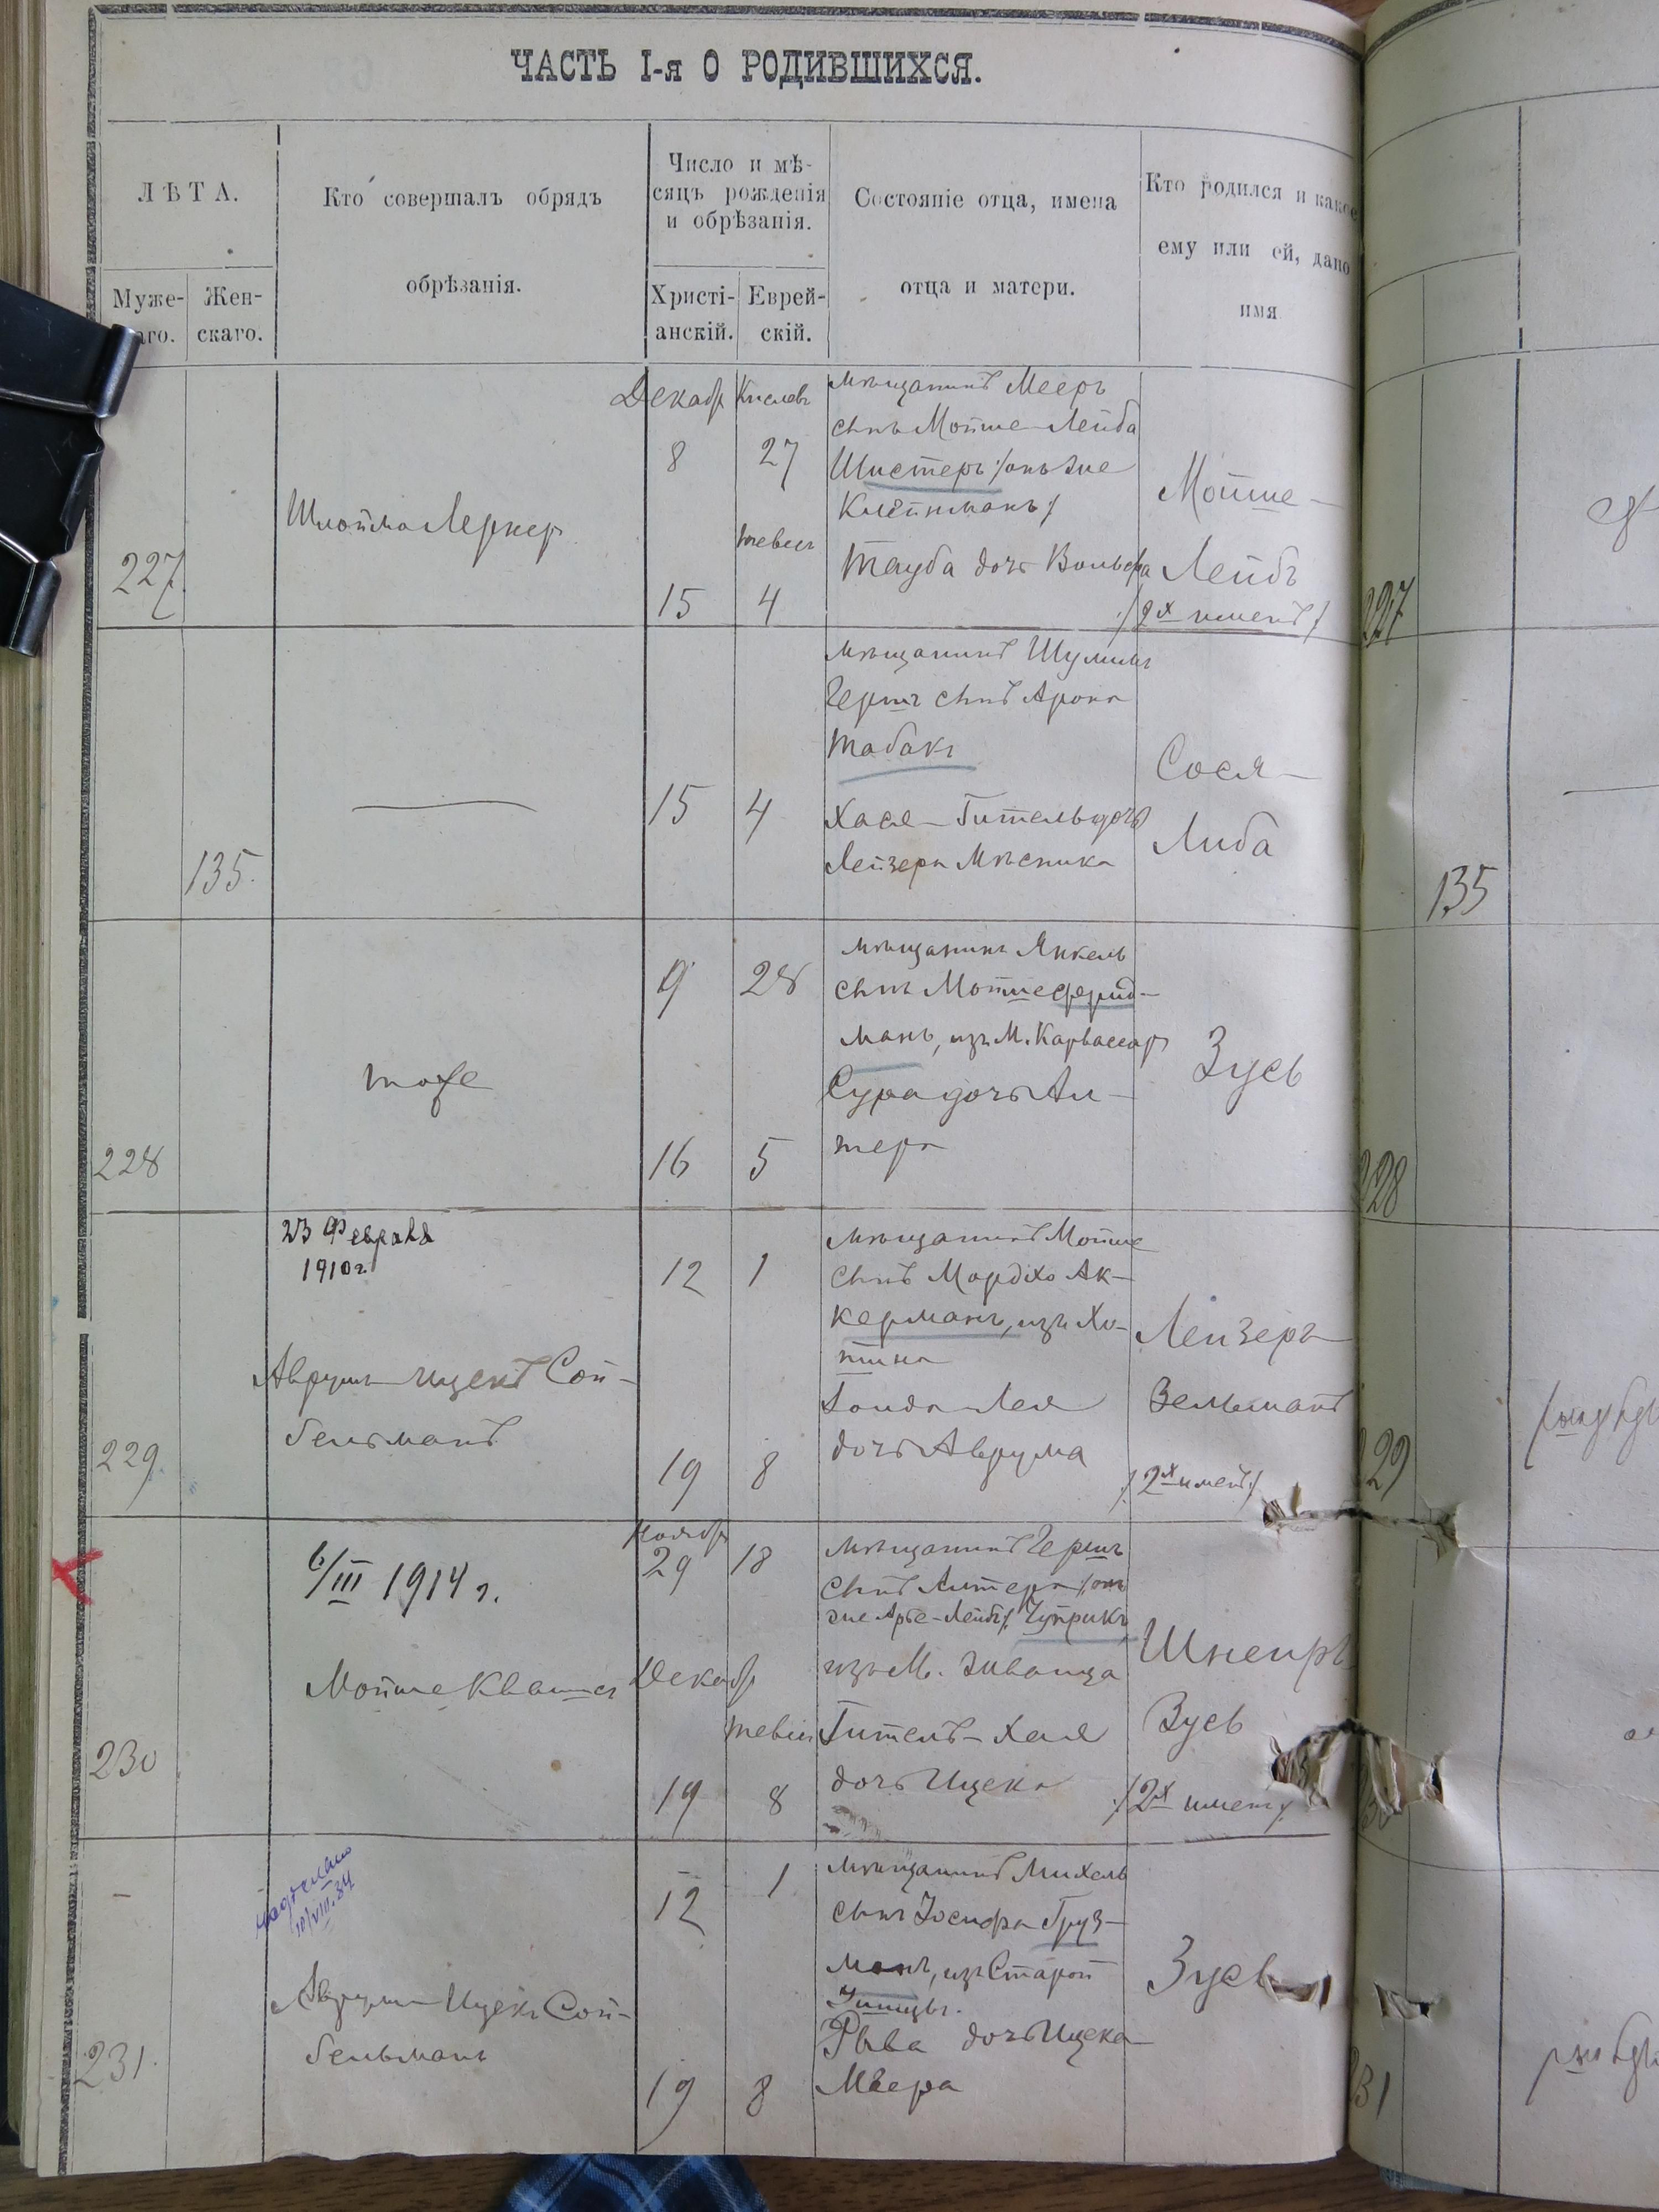 ЧАСТЬ I-я О РОДИВШИХСЯ.
ЛѢТА.
Муже-
аго.
Жен-
скаго.
Кто совершалъ обрядъ
обрѣзанія.
Число и мѣ-
сяцъ рожденія
и обрѣзанія.
Христі-
анскій.
Еврей-
скій.
Состояніе отца, имена
отца и матери.
Кто родился и какое
ему или ей, дано
имя
227
Шлойма Лернер
Декабр Кислевъ
8 27
тевесъ
15 4
мѣщанинъ Мееръ
сынъ Мойше-Лейба
Шистеръ /онъ же
Клейнманъ/
Тауба дочь Вольфа
Мойше-
Лейбъ
/2х именъ/
227
135.
15 4
мѣщанинъ Шулимъ
Гершъ сынъ Арона
Табакъ
Хася-Гитель дочь
Лейзера Мясника
Сося-
Либа
135
228
тоже
9 28
16 5
мѣщанинъ Янкель
сынъ Мойше Фрид-
манъ, изъ М. Карвасар
Сура дочь Аль-
тера
Зусь
228
229
23 Февраля
1910г.
Аврумъ Ицекъ Сой-
бельманъ
12 1
19 8
мѣщанинъ Мойше
сынъ Мордхо Ак-
керманъ, изъ Хо-
тина
Голда Лея
дочь Аврума
Лейзеръ
Зельманъ
/2х именъ/
29
230
6/III 1914 г.
Мойше Квашъ
Ноябр
29 18
Декабр
тевесъ
19 8
мѣщанинъ Гершъ
сынъ Алтера /онъ
же Арье-Лейбъ/ Чуприкъ
изъ М. Жванца
Гитель-Хая
дочь Ицека
Шнеиръ
Зусь
/2х именъ/
231.
10/VIII.34
Аврумъ Ицекъ Сой-
бельманъ
12 1
19 8
мѣщанинъ Михель
сынъ Іосифа Груз-
манъ, изъ Старой
Ушицы.
Рыва дочь Ицека-
Меера
Зусь
31